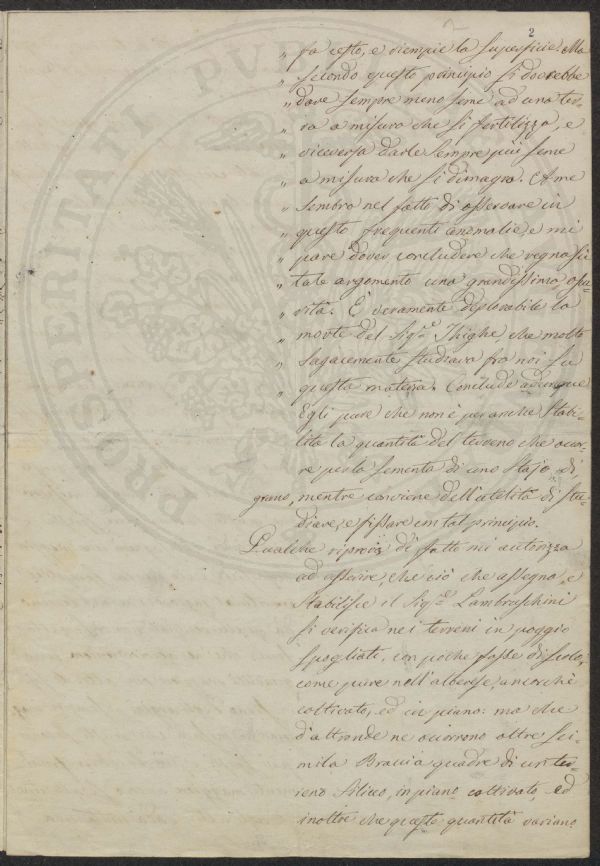 2
„ fa cesto, e riempie la superficie. Ma
„ secondo questo principio si dovrebbe
„ dare sempre meno seme ad una ter-
„ ra a misura che si fertilizza, e
„ viceversa darle sempre più seme
„ a misura che si dimagra. A me
„ sembra nel fatto di osservare in
„ questo frequenti anomalie, e mi
„ pare dover concludere che regna su
„ tale argomento una grandissima oscu-
„ rità. È veramente deplorabile la
„ morte del Sigre Thighe, che molto
„ sagacemente studiava fra noi su
„ questa materia. Conclude adunque
Egli pure che non è per anche stabi-
lita la quantità del terreno che occor-
re per la sementa di uno stajo di
grano, mentre conviene dell'utilità di stu-
diare, e fissare un tal principio.
Qualche riprova di fatto mi autorizza
ad asserire, che ciò che assegna e
stabilisce il Sigre Lambruschini
si verifica nei terreni in poggio
spogliati, con poche fosse di scolo,
come pure nell'alberese, ancorchè
coltivato, ed in piano: ma che
d'altronde ne occorrono oltre sei-
mila Braccia quadre di un ter-
reno siliceo, in piano coltivato, ed
inoltre che queste quantità variano
PROSPERITATI PUBLICAE